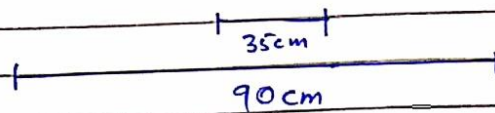 35cm
90cm